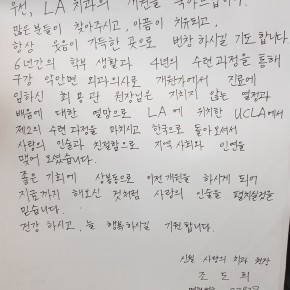 우선, LA 치과의 개원을 축하드립니다.
많은 분들이 찾아주시고, 아픔이 치유되고,
항상 웃음이 가득한 곳으로 번창하시길 기도합니다.
6년간의 학부 생활과 4년의 수련과정을 통해
구강 악안면 외과의사로 개원가에서 진료에
임하신 최용관 원장님은 지치지 않는 열정과
배움에 대한 열망으로 LA에 위치한 UCLA에서
제2의 수련과정을 마치시고 한국으로 돌아오셔서
사랑의 인술과 친절함으로 지역 사회와 인연을
맺어 오셨습니다.
좋은 기회에 상봉동으로 이전개원을 하게 되어
지금까지 해오신 것처럼 사랑의 인술을 펼치실것을
믿습니다.
건강하시고, 늘 행복하시길 기원합니다.
사랑의 치과 원장
조 도 희